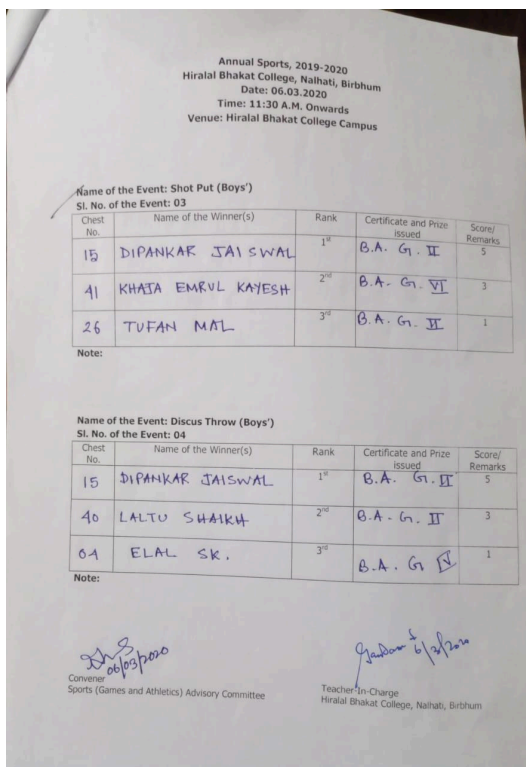 Annual Sports, 2019-2020
Hiralal Bhakat College, Nalhati, Birbhum
Date: 06.03.2020
Time: 11:30 A.M. Onwards
Venue: Hiralal Bhakat College Campus
Name of the Event: Shot Put (Boys')
Sl. No. of the Event: 03
Chest No. Name of the Winner(s) Rank Certificate and Prize issued Score/ Remarks
15 DIPANKAR JAISWAL 1st B.A. G. II 5
41 KHAJA EMRUL KAYESH 2nd B.A. G. VI 3
26 TUFAN MAL 3rd B.A. G. II 1
Note:
Name of the Event: Discus Throw (Boys')
Sl. No. of the Event: 04
Chest No. Name of the Winner(s) Rank Certificate and Prize issued Score/ Remarks
15 DIPANKAR JAISWAL 1st B.A. G. II 5
40 LALTU SHAIKH 2nd B.A. G. II 3
04 ELAL SK. 3rd B.A. G 1
Note:
06/03/2020
6/3/2020
Convener
Sports (Games and Athletics) Advisory Committee
Teacher-In-Charge
Hiralal Bhakat College, Nalhati, Birbhum